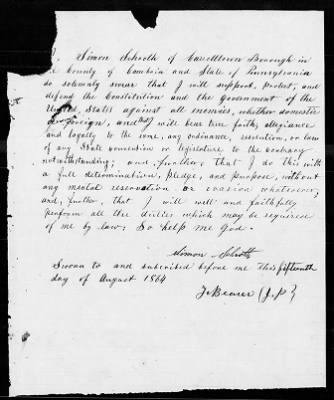 I, Simon Schroth of Carrolltown Borough in
the County of Cambria and State of Pennsylvania
do solemnly swear that I will support, protect, and
defend the Constitution and the Government of the
United States against all enemies, whether domestic
or foreign, and that I will bear true faith, allegiance
and loyalty to the same, any ordinance, resolution, or law
of any State convention or legislature to the contrary
notwithstanding; and further, that I do this with
a full determination, pledge, and purpose, without
any mental reservation or evasion whatsoever;
and, further, that I will well and faithfully
perform all the duties which may be required
of me by law; So help me God.
Simon Schroth
Sworn to and subscribed before me this fifteenth
day of August 1864
J. Beaver (J.P.)